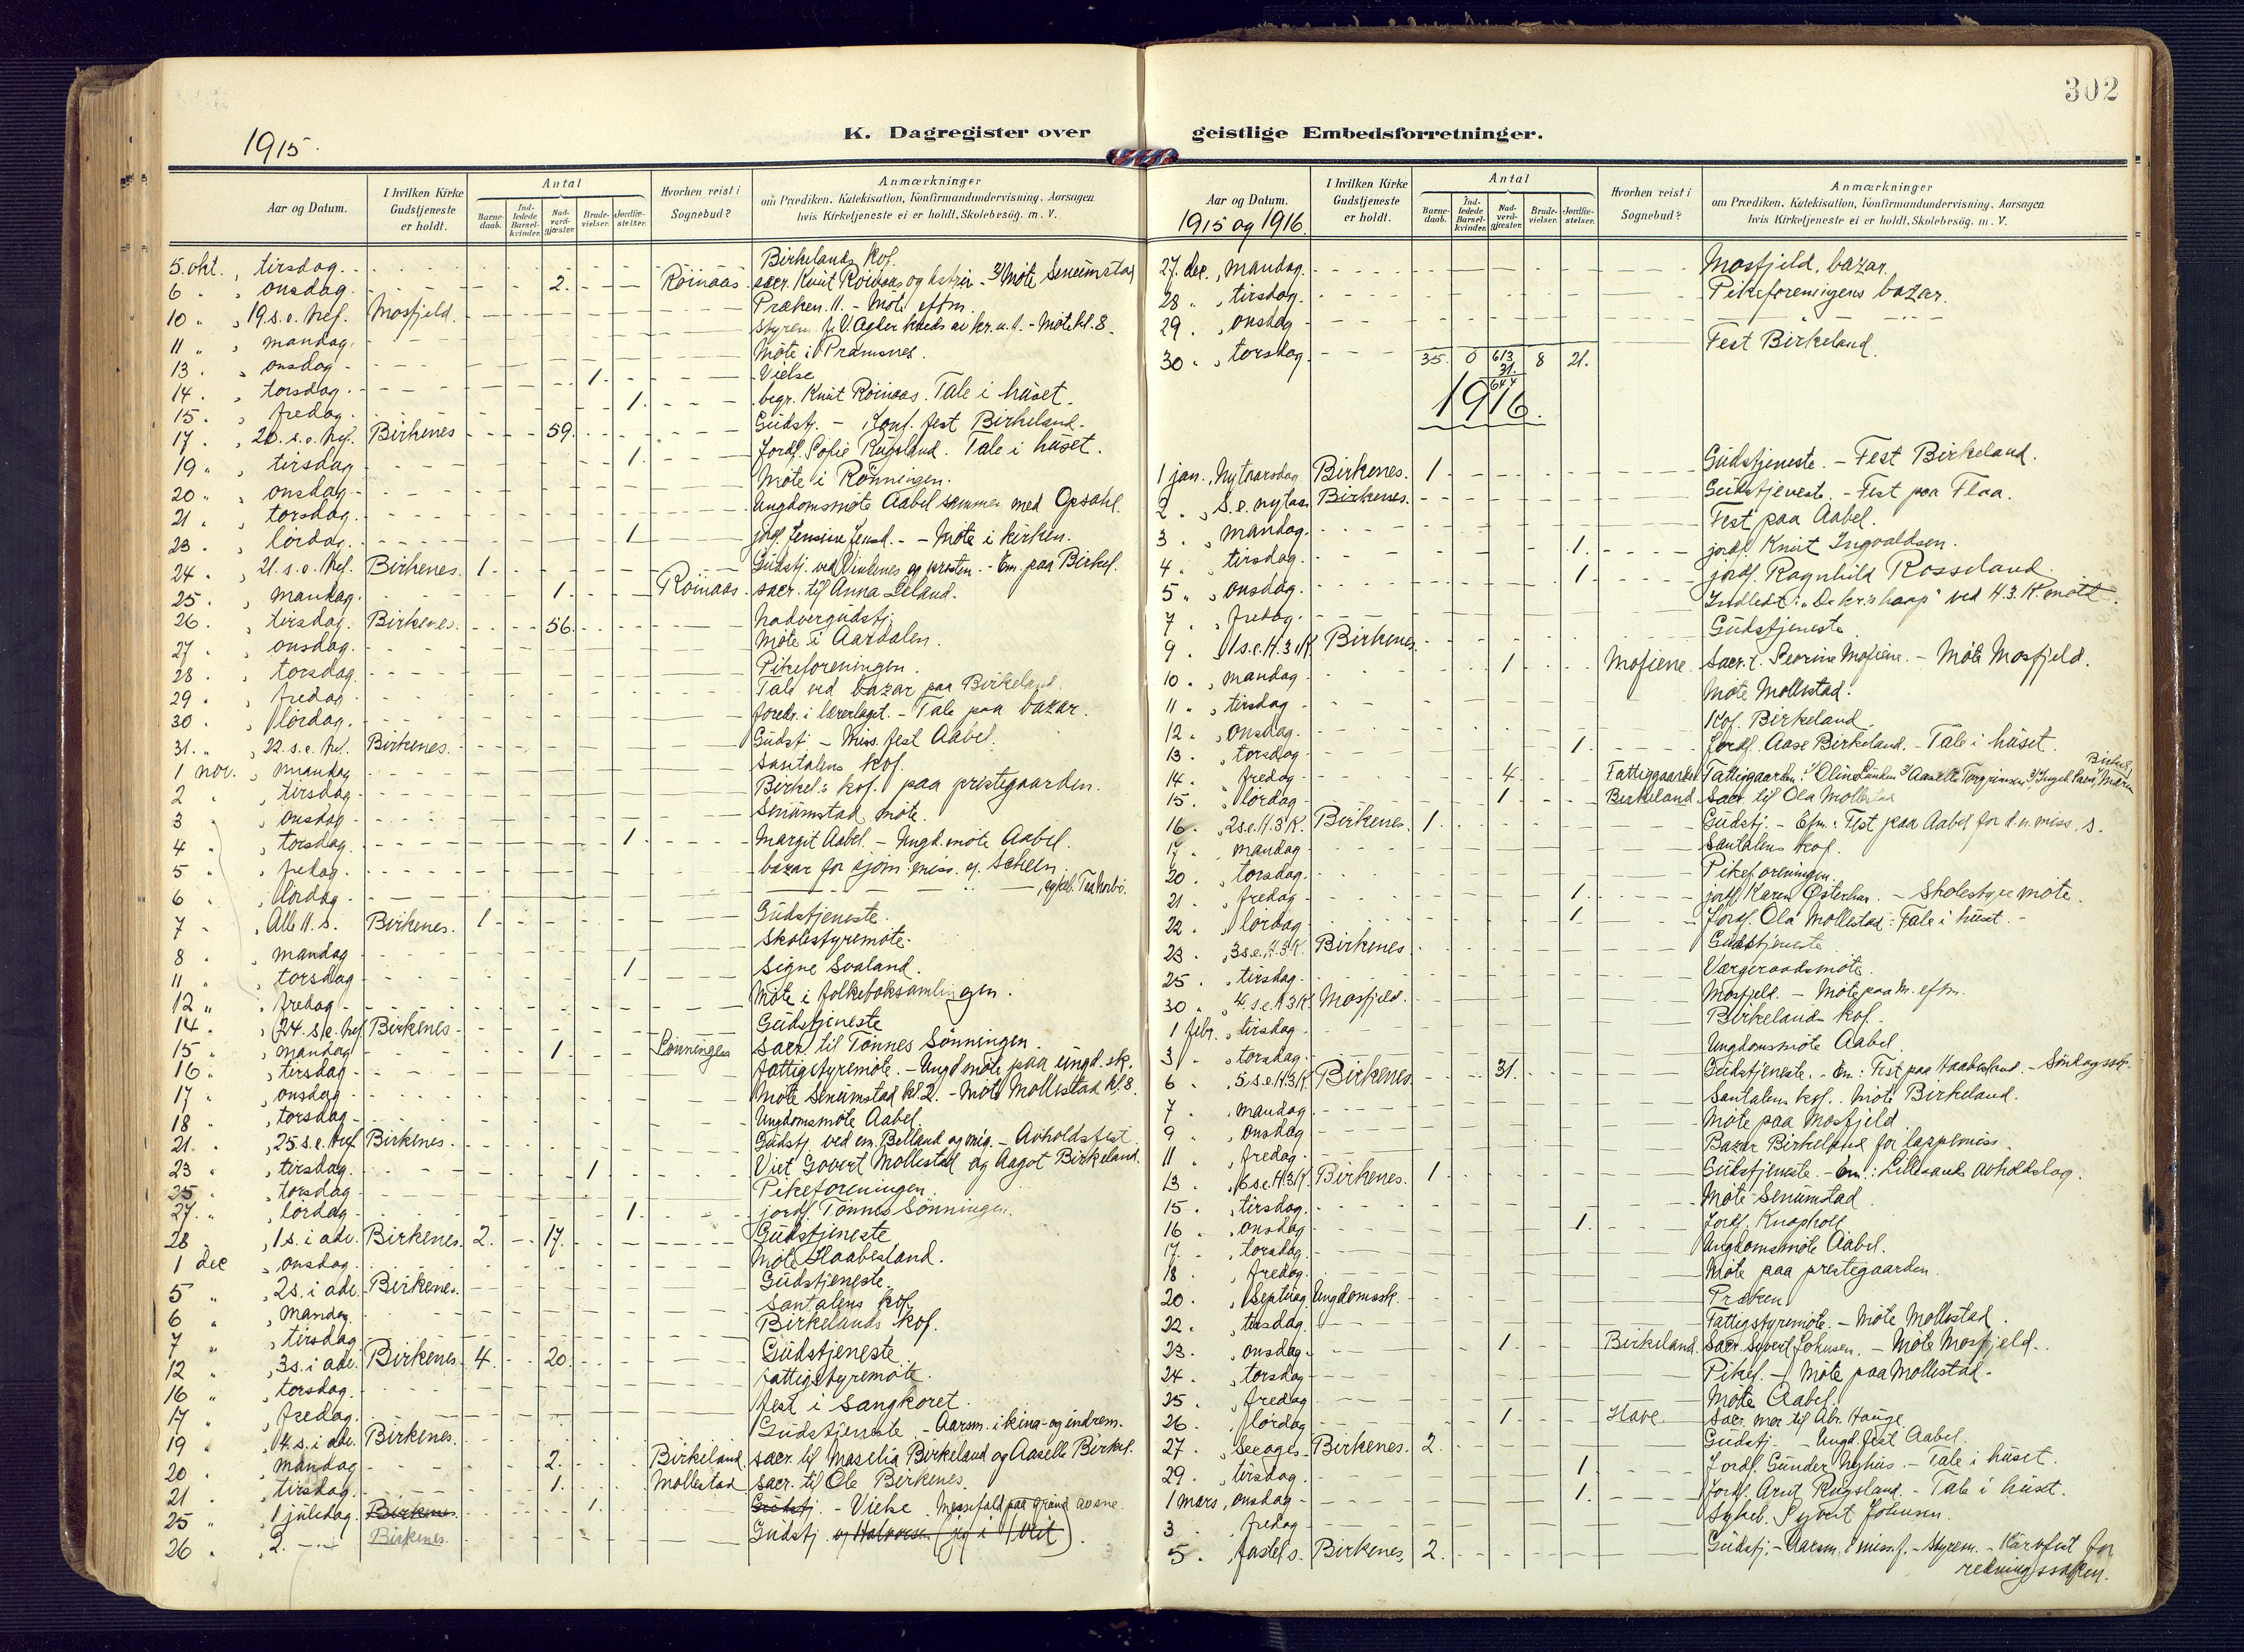 302
K. Dagregister over geistlige Embedsforretninger.
1915.
Aar og Datum.
I hvilken Kirke Gudstjeneste er holdt.
Antal
Barnedaab.
Indledede Barselkvinder.
Nadverdgjæster.
Brudevielser.
Jordfæstelser.
Hvorhen reist i Sognebud?
Anmærkninger
om Prædiken, Katekisation, Konfirmandundervisning, Aarsagen
hvis Kirketjeneste ei er holdt, Skolebesøg. m. V.
5. okt. , tirsdag. Birkelands kof.
6 " , onsdag. 2. Röinaas sacr. Knut Röinaas og hustru - Möte Senumstad
10 " , 19. s. e. tref. Mosfjeld. Præken 11. - Möte eftm.
11 " , mandag. Styrem. f. V. Agder kreds av kr. u. f. - Möte kl. 8.
13 . , onsdag - Möte i Pramsnes.
14 . , torsdag. 1. Vielse
15 . , fredag. 1. begr. Knut Röinaas. Tale i huset.
17 . , 20. s. e. tref. Birkenes 59. Gudstj. - Konf. fest Birkeland.
19 " , tirsdag 1. Jordf. Sofie Rugsland. Tale i huset.
20 " , onsdag - Möte i Rönningen.
21 " , torsdag. Ungdomsmöte Aabel sammen med Opsahl.
23 . , lördag. 1 - Möte i kirken.
24 " , 21. s. e. tref. Birkenes. 1. Gudstj. ved Vinlenes og prosten. - Em. paa Birkel.
25 . , mandag. 1. Röinaas. sacr. til Anna Leland.
26. , tirsdag. Birkenes. 56. Nadvergudstj.
27 " , onsdag. Möte i Aardalen.
28. , torsdag. Pikeforeningen.
29 . , fredag - Tale ved bazar paa Birkeland.
30 . , lördag. foredr. i lærerlaget. - Tale paa bazar.
31. " , 22. s. e. tref. Birkenes. Gudstj - Miss. fest Aabel.
1 nov. , mandag Santalens kof.
2 " , tirsdag Birkel:s kof. paa prestegaarden.
3 " , onsdag. Senumstad möte.
4 " , torsdag. 1. Margit Aabel. - Ungd. möte Aabel.
5 " , fredag. bazar for sjöm. miss. og Scheen.
6 " , lördag -
7 - , Alle H. s. Birkenes. 1 Gudstjeneste.
8 . , mandag Skolestyremöte.
11 " , torsdag 1 Signe Svaland.
12 " , fredag - Möte i folkeboksamlingen.
14 . , 24. s. e. tref Birkenes. Gudstjeneste
15 . , mandag 1. Sönningen sacr. til Tönnes Sönningen.
16 . , tirsdag - Fattigstyremöte. - Ungd möte paa ungd. sk.
17 . , onsdag - Möte Senumstad kl. 2. - Möte Mollestad kl. 8.
18 " , torsdag - Ungdomsmöte Aabel
21. . , 25. s. e. tref Birkenes - Gudstj. ved em. Belland og mig. - Avholdsfest
23 " , tirsdag. 1 Viet Govert Mollestad og Aagot Birkeland.
25 " , torsdag Pikeforeningen.
27. " , lördag - 1. jordf. Tönnes Sönningen.
28 . , 1 s. i adv. Birkenes. 2. 17. Gudstjeneste
1 dec , onsdag. Möte Haabesland.
5 " , 2 s. i adv Birkenes. Gudstjeneste.
6 " , Mandag. Santalens kof.
7 " , tirsdag Birkelands kof.
12 " , 3 s. i adv. Birkenes. 4. 20. Gudstjeneste
16 " , torsdag. fattigstyremöte.
17 " , fredag. fest i sangkoret.
19 " , 4. s. i adv. Birkenes. Gudstjeneste - Aarsm. i kina- og indrem.
20 . , mandag 2. Birkeland. sacr. til Masilia Birkeland og Aaselle Birkel.
21 . , tirsdag. 1. Mollestad sacr. til Ole Birkenes.
25 " , 1 juledag. Birkenes. 1. Gudstj. - Vielse. Messefald paa grund
26 . , 2. - Birkenes. Gudstj. og Halvorsen (jeg i
1915 og 1916.
Aar og Datum.
I hvilken Kirke Gudstjeneste er holdt.
Antal
Barnedaab.
Indledede Barselkvinder.
Nadverdgjæster.
Brudevielser.
Jordfæstelser.
Hvorhen reist i Sognebud?
Anmærkninger
om Prædiken, Katekisation, Konfirmandundervisning, Aarsagen
hvis Kirketjeneste ei er holdt, Skolebesøg. m. V.
27. dec. , mandag. Mosfjeld, bazar.
28 " , tirsdag. Pikeforeningens bazar.
29 . , onsdag -
30 . , torsdag. 35. 0 613 8 21. Fest Birkeland.
31.
644
1916.
1 jan. , Nytaarsdag Birkenes. 1 Gudstjeneste. - Fest Birkeland.
2 . , S. e. nytaar Birkenes. Gudstjeneste. - Fest paa Flaa.
3 . , mandag. Fest paa Aabel.
4 . , tirsdag. 1. jordf. Knut Ingvaldsen.
5 " , onsdag. 1. jordf. Ragnhild Rosseland.
7 . , fredag. Indledt: "De kr:s haap" ved H. 3. K. möte.
9 . , 1 s. e. H. 3 K. Birkenes. Gudstjeneste
10 . , mandag 1 Mofiene. Sacr. t. Seorine Mofiene. - Möte Mosfjeld.
11 " , tirsdag - Möte Mollestad.
12 . , onsdag. Kof. Birkeland.
13 . , torsdag 1. Jordf. Aase Birkeland. - Tale i huset.
14 . , fredag 4. Fattiggaarden Fattiggaarden:
15. , lördag 1 Birkeland Sacr. til Ola Mollestad
16 . , 2 s. e. H. 3 K. Birkenes. 1. Gudstj. - Efm: Fest paa Aabel for d. n. miss. s.
17 . , mandag Santalens kof.
20 . , torsdag. Pikeforeningen.
21 . , fredag 1. jordf. Karen Österhus. - Skolestyremöte.
22. , lördag 1. Jordf Ola Mollestad: Tale i huset. -
23 . , 3 s. e. H. 3 K. Birkenes. Gudstjeneste
25 . , tirsdag. Værgeraadsmöte.
30 " , 4. s. e. H 3 K Mosfjeld. Mosfjeld. - Möte paa M. efm.
1 febr. , tirsdag - Birkelands kof.
3 " , torsdag. Ungdomsmöte Aabel.
6 . , 5 s. e. H. 3 K Birkenes. 31. Gudstjeneste. - Em: Fest paa Haabesland. - Söndagssk.
7 . , mandag - Santalens kof. . Möte Birkeland.
9 . , onsdag Möte paa Mosfjeld
11 . , fredag. Bazar Birkeland for lappemiss.
13 . , 6 s. e. H 3 K. Birkenes. 1 Gudstjeneste. - Em: Lillesands avholdslag.
15. , tirsdag. Möte Senumstad
16 . , onsdag 1. Jordf. Knapholt
17. . , torsdag. Ungdomsmöte Aabel.
18 . , fredag. Möte paa prestegaarden.
20 . , Septuag Ungdomssk. Præken
22 . , tirsdag. Fattigstyremöte. - Möte Mollestad.
23. , onsdag. 1. Birkeland. Sacr. Syvert Johnsen. - Möte Mosfjeld.
24 . , torsdag Pikef. - Möte paa Mollestad.
25 . , fredag Möte Aabel.
26 . , lördag 1. Have. Sacr. mor til Abr. Hauge
27 . , Sexages. Birkenes. 2. Gudstj. - Ungd. fest Aabel.
29 . , tirsdag. 1 Jordf. Gunder Nyhus. - Tale i huset.
1 mars , onsdag - 1. Jordf. Arnt Rugsland. - Tale i huset.
3 . , fredag Sykeb. Syvert Johnsen.
5 . , fastel s. Birkenes. 2. Gudstj. - Aarsm. i miss. f. - Styrem. - for
redningssaken.